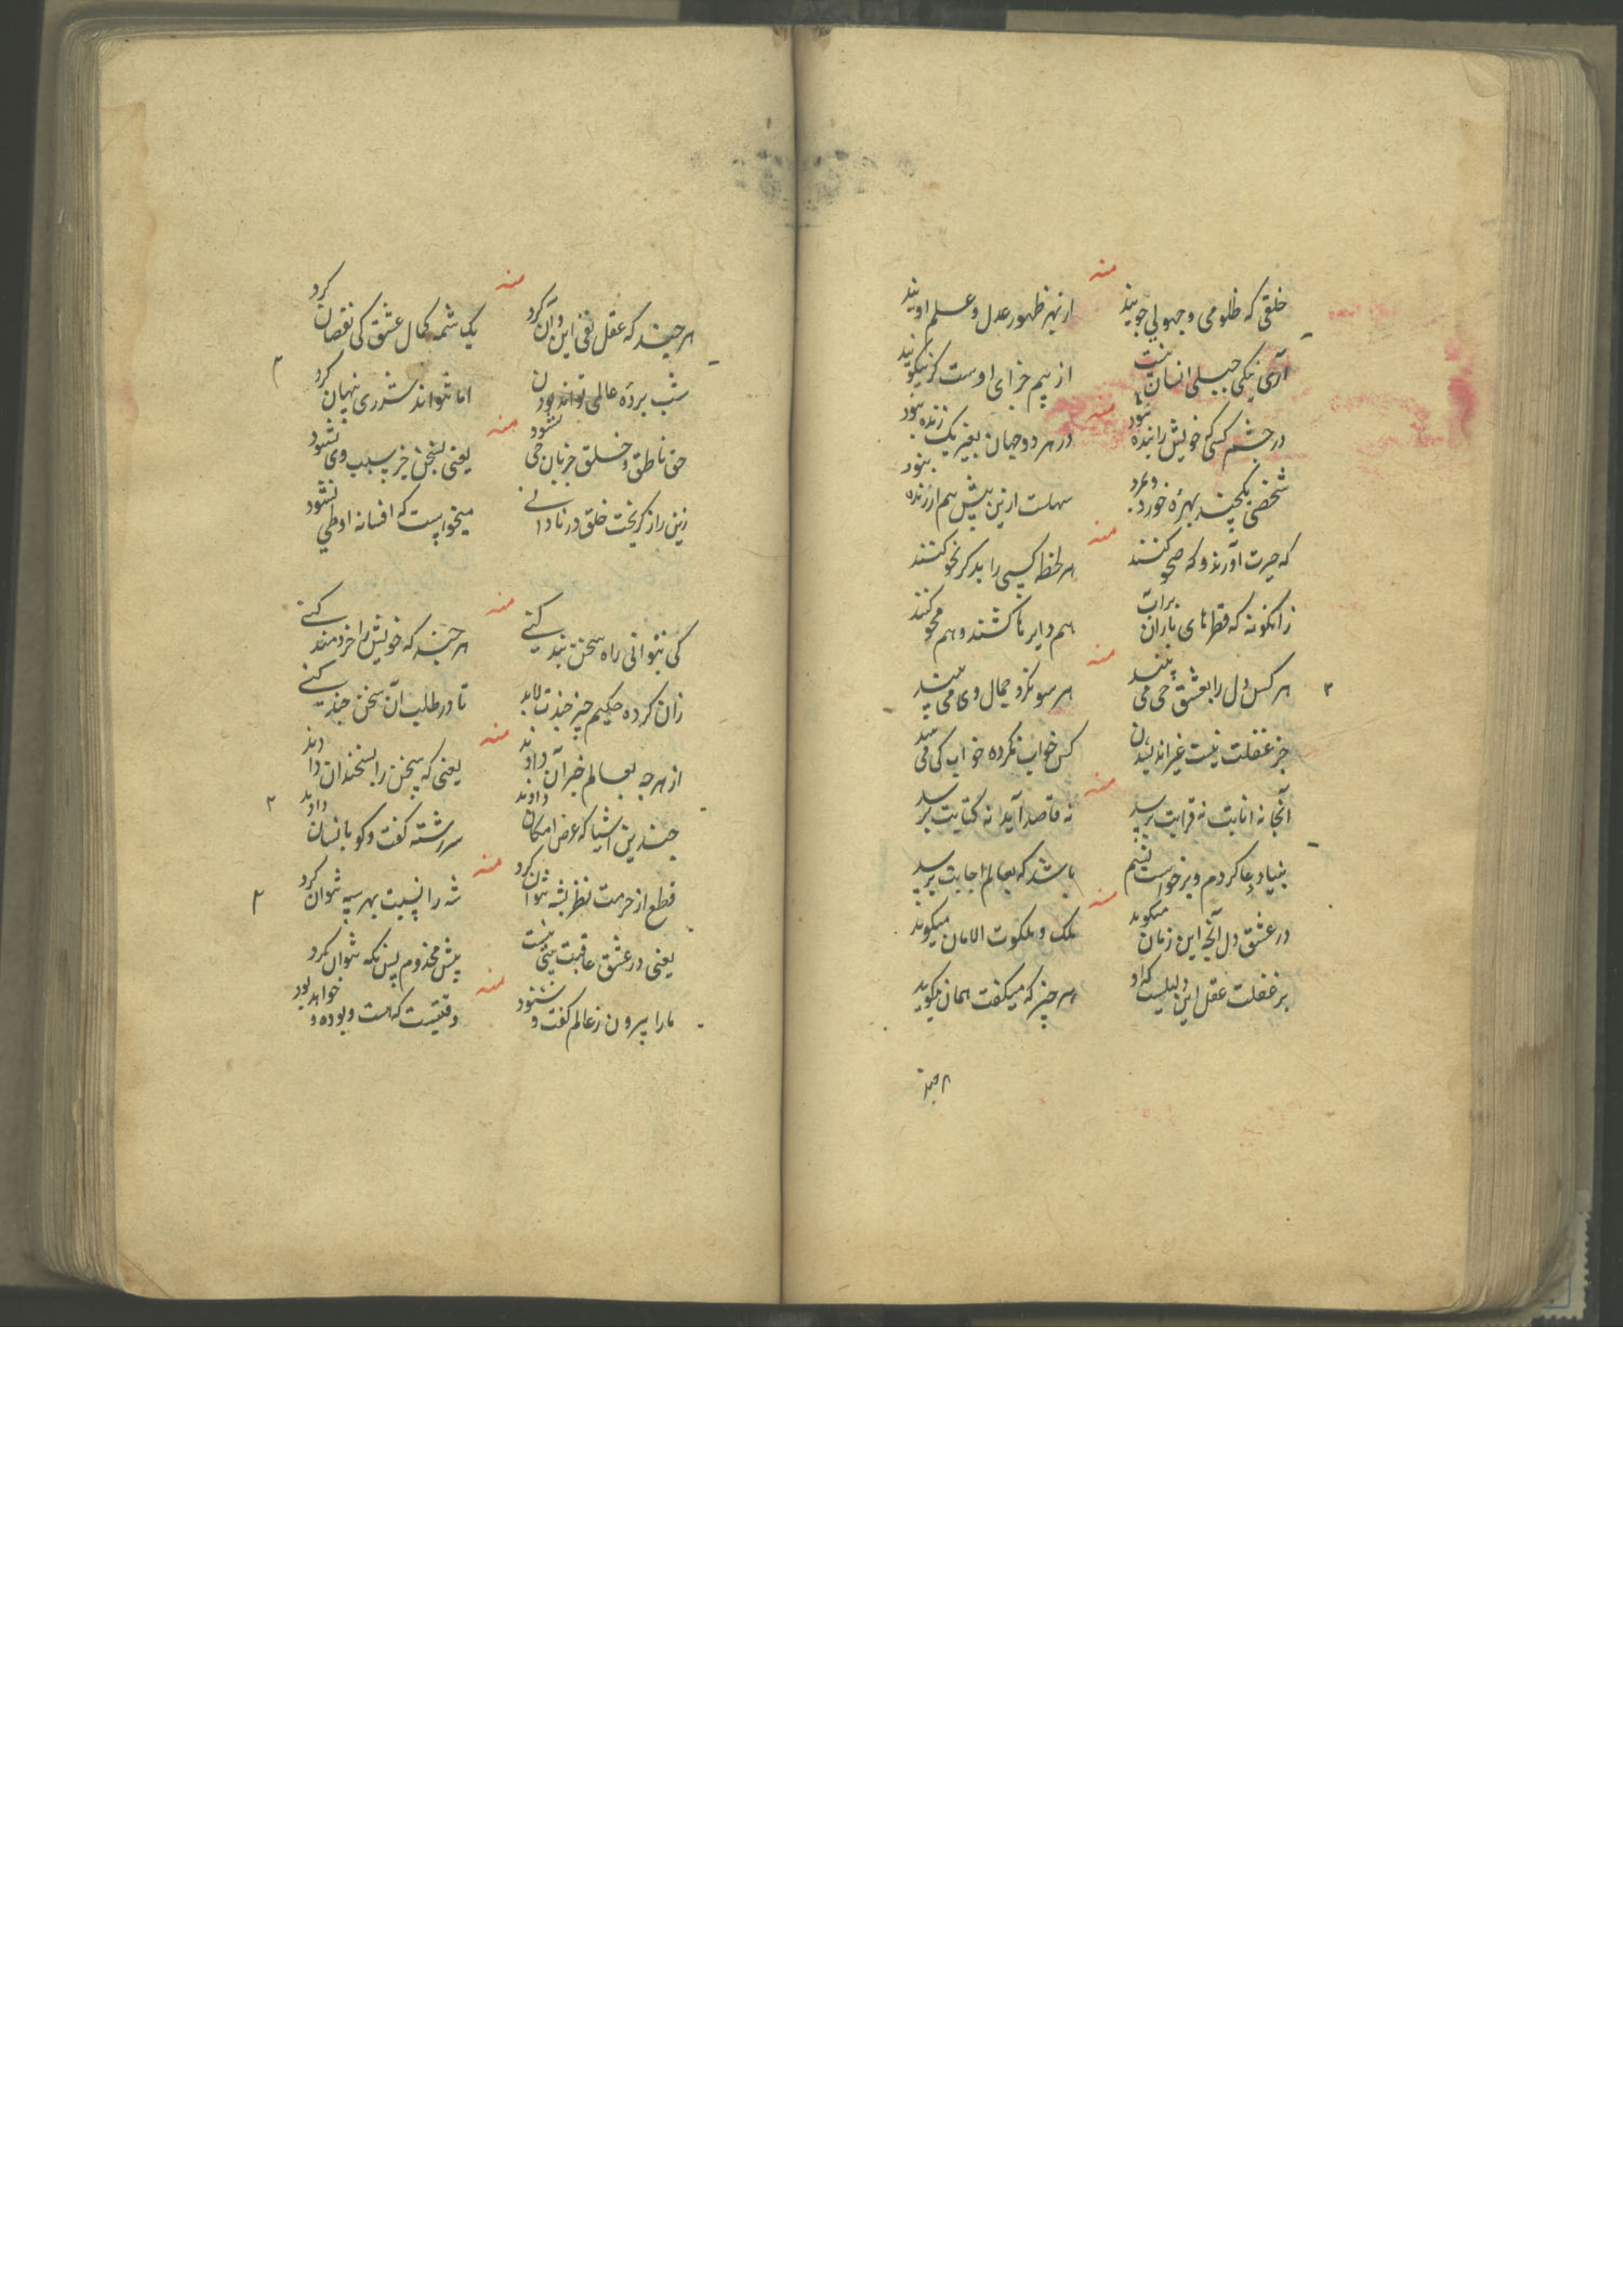 منه
خلقی که ظلومی و جهولی جویند از بهر ظهور عدل و علم اویند
آری نیکی جبلی انسان نیست از بیم خزای اوست کر نیکویند
منه
در چشم کسی که خویش را بنده نبود در هر دو جهان بغیر یک زنده نبود
شخصی یکچند بهره خورد و مرد سهلست ازین بیش هم ارزنده نبود
منه
که حیرت آورند و که صحو کنند هر لحظه کسی را بد کر نحو کنند
زانکونه که قطرهای باران بر آب هم دایرها کشند و هم محو کنند
منه
هر کس دل را بعشق حی می بیند هر سو نکرد جمال وی می بیند
جز غفلت نیست غیر اندیشیدن کس خواب نکرده خواب کی می بیند
منه
آنجا نه انابت نه قرابت برسد نه قاصد آید نه کتابت برسد
بنیاد دعا کردم و برخواست نشیم باشد که بعالم اجابت برسد
منه
در عشق دل آنچه این زمان میکوید ملک و ملکوت الامان میکوید
بر غفلت عقل این دلیلست که او هر چیز که میکفت همان میکوید
منه
هر چند که عقل نفی این و آن کرد یک شمه کمال عشق کی نقصان کرد
شب پرده عالمی تواند بودن اما نتواند شرری پنهان کرد
منه
حق ناطق و خلق جز زبان حی نشود یعنی بسخن جز بسبب وی نشود
زین راز کریخت خلق در نادانی میخواست که افسانه او طی نشود
منه
کی بتوانی راه سخن بند کنی هر چند که خویش را خردمند کنی
زان کرده حکیم چیز چندت لابد تا در طلب آن سخن چند کنی
منه
از هر چه بعالم خبر آن دادند یعنی که سخن را بسخندان دادند
چندین اشیا که عرض امکان دادند سررشته کفت و کو بانسان دادند
منه
قطع از حرمت نظر بشه نتوان کرد شه را نسبت بهر سپه نتوان کرد
یعنی در عشق عاقبت بینی نیست پیش مخدوم پس نکه نتوان کرد
منه
ما را بیرون ز عالم کفت و شنود وقتیست که هست و بوده و خواهد بود